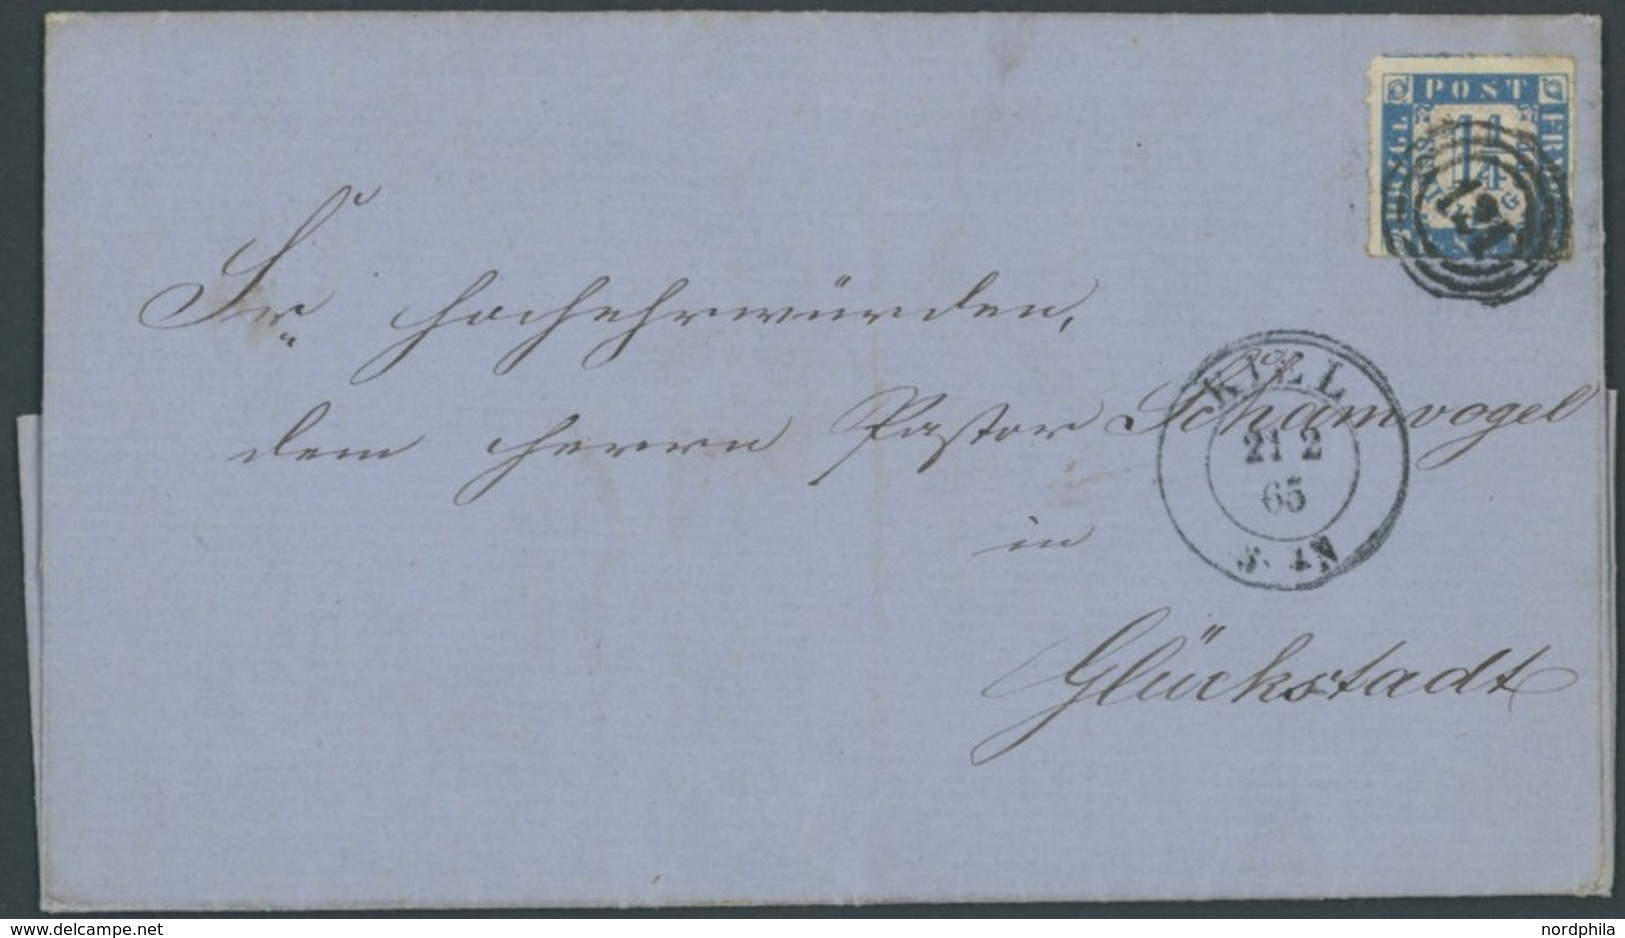 POST
HRZGL
FRM
1 1/4
121
Sr. Hochehrwürden,
KIEL
dem Herrn Pastor Schamvogel
21 2
65
in
Glückstadt
delcampe.net
nordphila